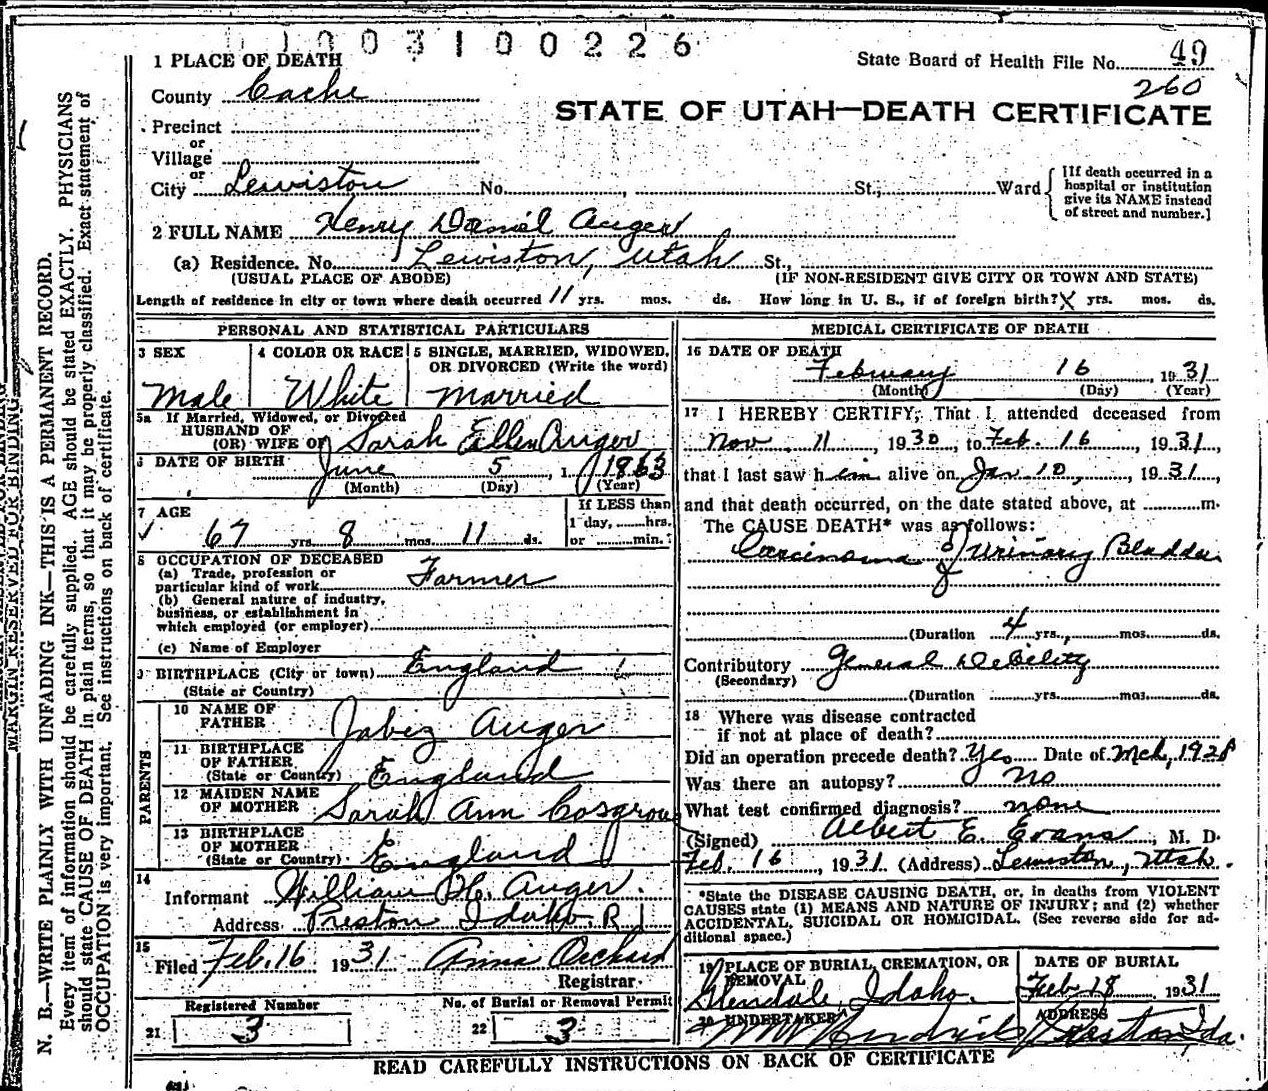 0100310 0226
State Board of Health File No. 49
260
STATE OF UTAH—DEATH CERTIFICATE
1 PLACE OF DEATH
County Cache
Precinct
or
Village
or
City Lewiston No. , St., Ward
[If death occurred in a
hospital or institution
give its NAME instead
of street and number.]
2 FULL NAME Henry Daniel Auger
(a) Residence. No. Lewiston, Utah St.,
(USUAL PLACE OF ABODE) (IF NON-RESIDENT GIVE CITY OR TOWN AND STATE)
Length of residence in city or town where death occurred 11 yrs. mos. ds. How long in U. S., if of foreign birth? X yrs. mos. ds.
PERSONAL AND STATISTICAL PARTICULARS
3 SEX
Male
4 COLOR OR RACE
White
5 SINGLE, MARRIED, WIDOWED,
OR DIVORCED (Write the word)
Married
5a If Married, Widowed, or Divorced
HUSBAND OF
(OR) WIFE OF Sarah Ellen Auger
6 DATE OF BIRTH June 5, 1863
(Month) (Day) (Year)
7 AGE
67 yrs. 8 mos. 11 ds.
If LESS than
1 day, hrs.
or min.?
8 OCCUPATION OF DECEASED
(a) Trade, profession or
particular kind of work Farmer
(b) General nature of industry,
business, or establishment in
which employed (or employer)
(c) Name of Employer
9 BIRTHPLACE (City or town) England
(State or Country)
PARENTS
10 NAME OF
FATHER Jabez Auger
11 BIRTHPLACE
OF FATHER
(State or Country) England
12 MAIDEN NAME
OF MOTHER Sarah Ann Cosgrove
13 BIRTHPLACE
OF MOTHER
(State or Country) England
14
Informant William H. Auger.
Address Preston Idaho. R 1
15
Filed Feb. 16 1931 Anna Orchard
Registrar.
Registered Number
21 3
No. of Burial or Removal Permit
22 3
MEDICAL CERTIFICATE OF DEATH
16 DATE OF DEATH
February 16, 1931
(Month) (Day) (Year)
17 I HEREBY CERTIFY; That I attended deceased from
Nov. 11, 1930, to Feb. 16, 1931,
that I last saw him alive on Jan 10, 1931,
and that death occurred, on the date stated above, at m.
The CAUSE DEATH* was as follows:
Carcinoma of Urinary Bladder
(Duration 4 yrs., mos. ds.
Contributory General Debility
(Secondary)
(Duration yrs. mos. ds.
18 Where was disease contracted
if not at place of death?
Did an operation precede death? Yes Date of Mch, 1928
Was there an autopsy? No
What test confirmed diagnosis? none
(Signed) Albert E. Evans, M. D.
Feb. 16, 1931. (Address) Lewiston, Utah.
*State the DISEASE CAUSING DEATH, or, in deaths from VIOLENT
CAUSES state (1) MEANS AND NATURE OF INJURY; and (2) whether
ACCIDENTAL, SUICIDAL OR HOMICIDAL. (See reverse side for ad-
ditional space.)
19 PLACE OF BURIAL, CREMATION, OR
REMOVAL
Glendale, Idaho.
DATE OF BURIAL
Feb 18 1931
20 UNDERTAKER
Hendricks
ADDRESS
Preston, Ida.
READ CAREFULLY INSTRUCTIONS ON BACK OF CERTIFICATE
MARGIN RESERVED FOR BINDING
N. B.—WRITE PLAINLY WITH UNFADING INK—THIS IS A PERMANENT RECORD.
Every item of information should be carefully supplied. AGE should be stated EXACTLY. PHYSICIANS
should state CAUSE OF DEATH in plain terms, so that it may be properly classified. Exact statement of
OCCUPATION is very important. See instructions on back of certificate.